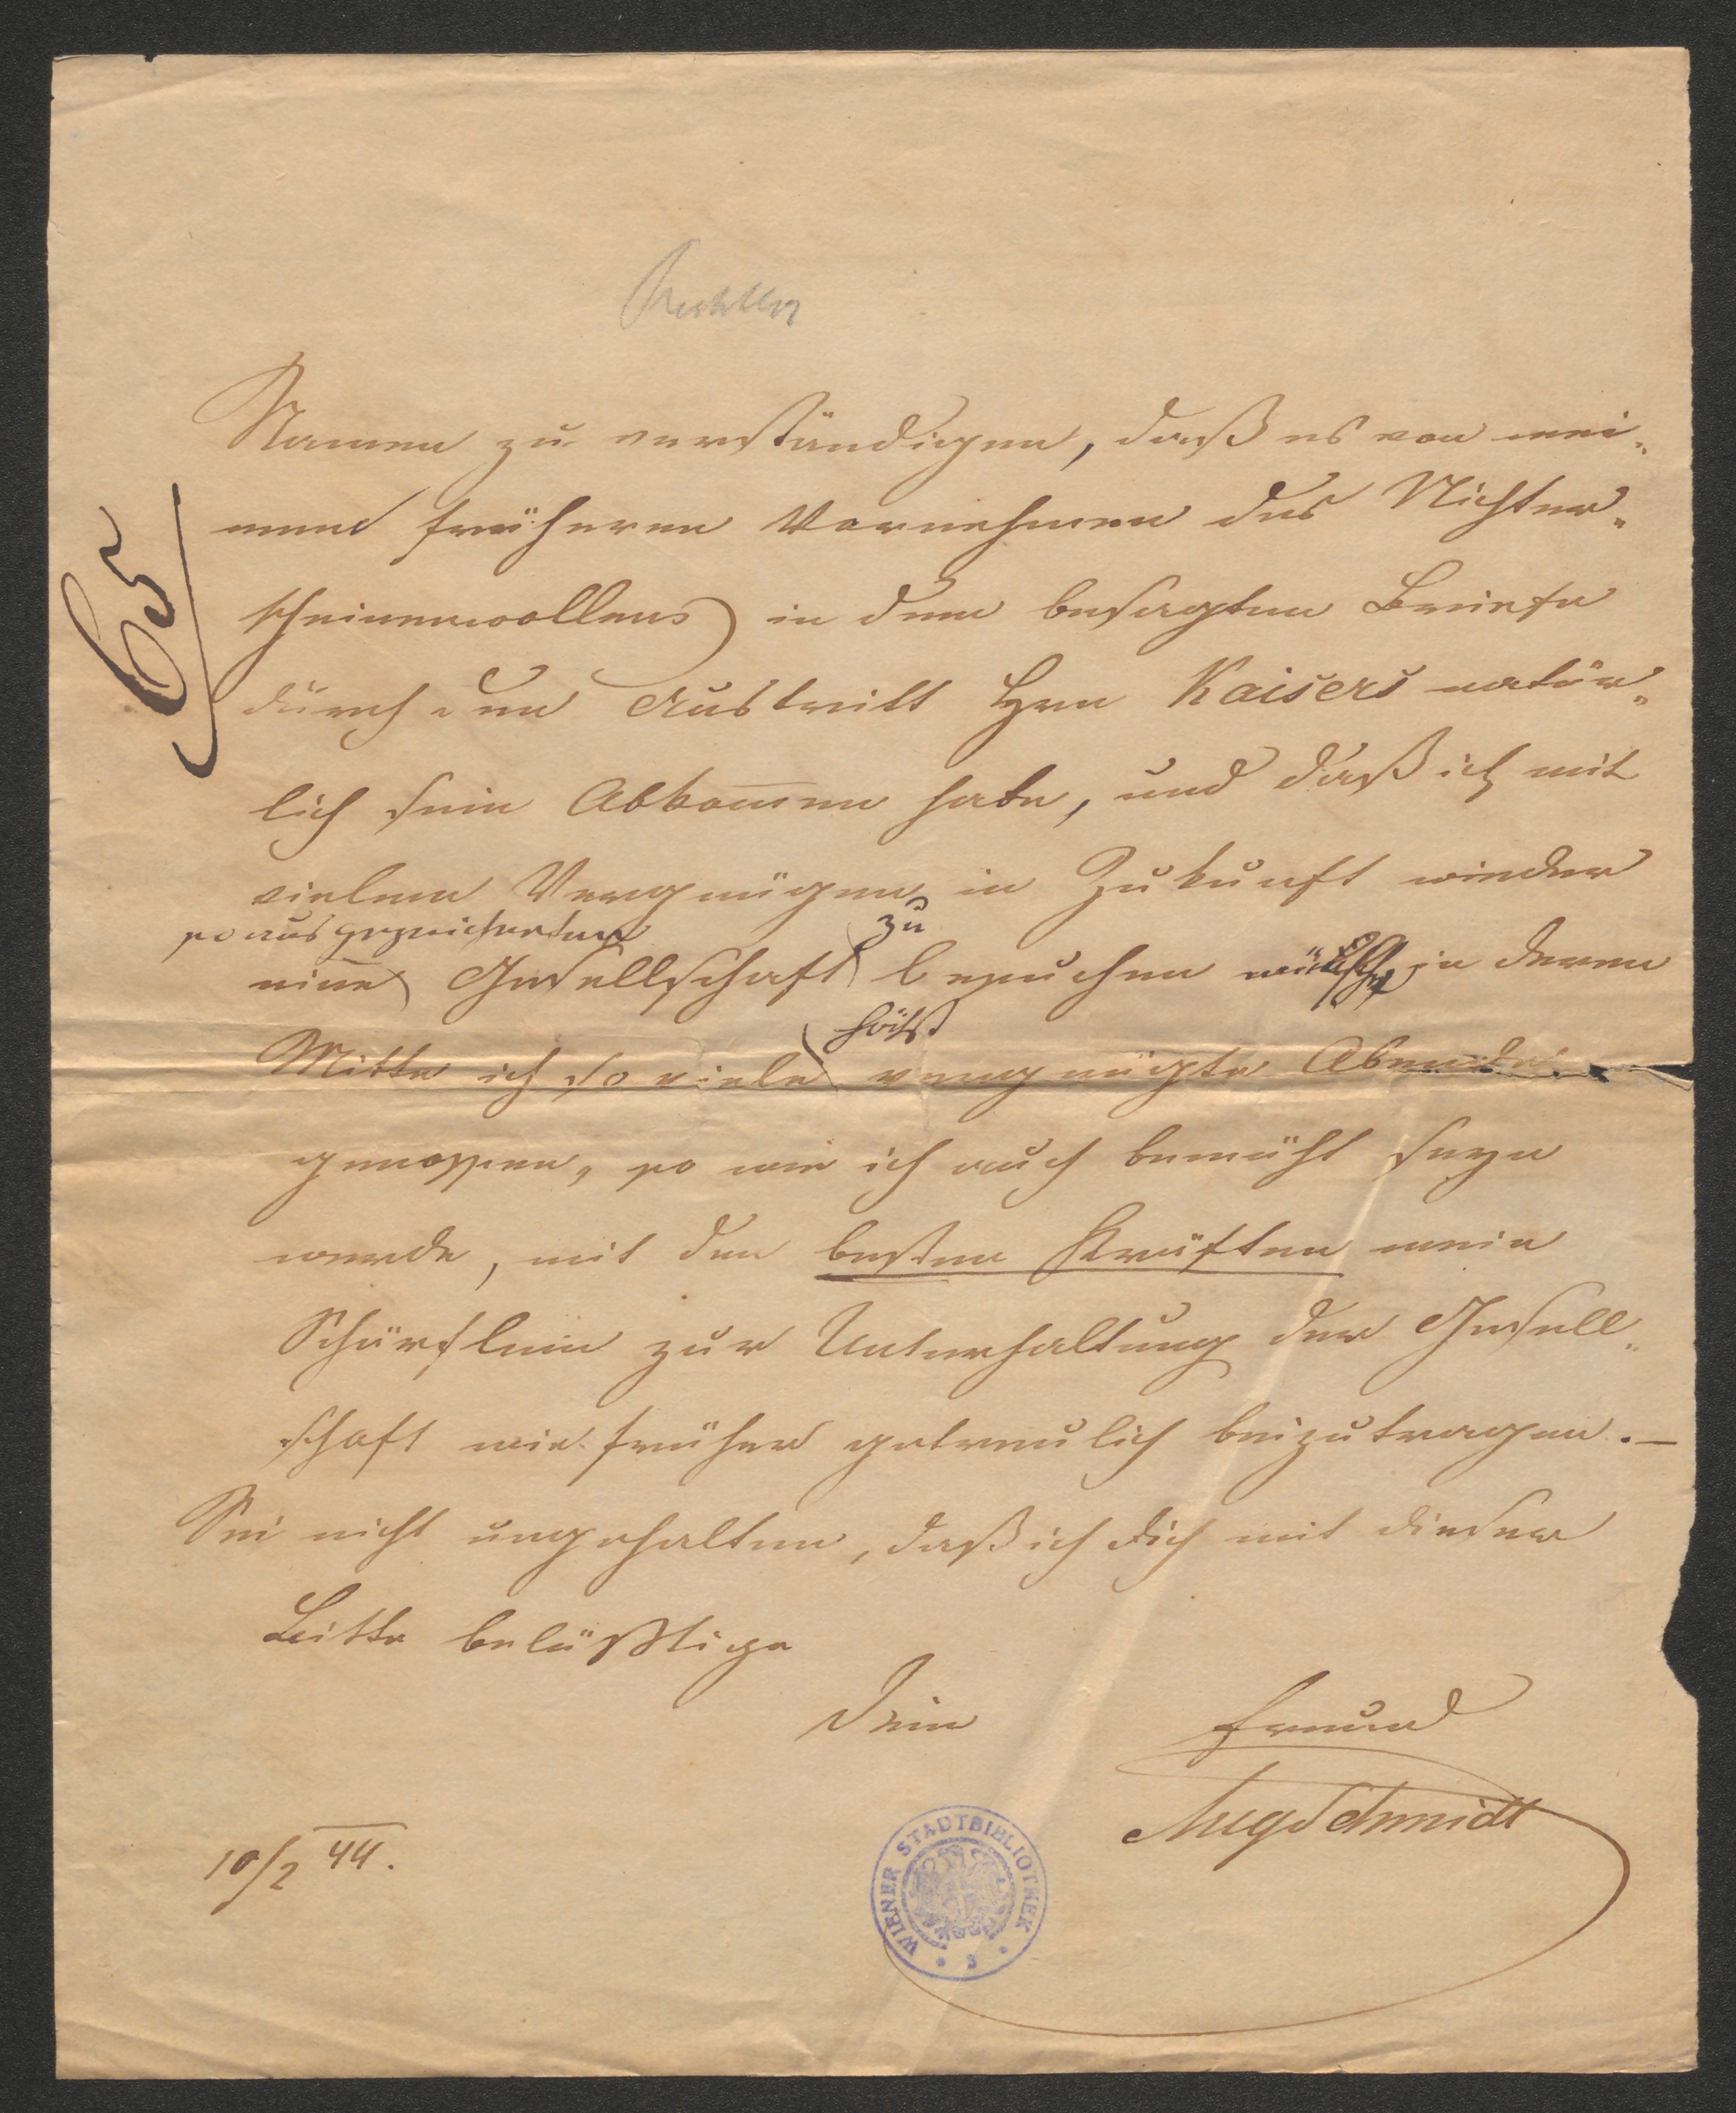 65
Namen zu verständigen, daß es von mei„
nem früheren Vornehmen des Nichter„
scheinenwollens in dem besagten Briefe
durch den Austritt Hrn Kaisers natür„
lich sein Abkom̅en habe, und daß ich mit
vielem Vergnügen in Zukunft wieder
so ausgezeichneten zu
eine Gesellschaft besuchen wünsche in deren
höchst
Mitte ich so viele vergnügte Abende
genossen, so wie ich auch bemüht seyn
werde, mit den besten Kräften mein
Schärflein zur Unterhaltung der Gesell„
schaft wie früher getreulich beizutragen. —
Sei nicht ungehalten, daß ich dich mit dieser
Bitte beläßtige
Dein Freund
Aug Schmidt
10/2 44.
WIENER STADTBIBLIOTHEK